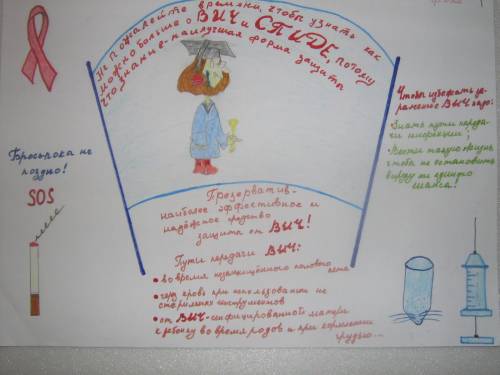 Не пожалейте времени, чтобы узнать как
можно больше о ВИЧ и СПИДЕ, потому
что знание - наилучшая форма защиты
Чтобы избежать за-
ражение ВИЧ надо:
Знать пути переда-
чи инфекции;
Вести такую жизнь
чтобы не оставить
вирусу ни единого
шанса!
Бросьпока не
поздно!
SOS
Презерватив-
наиболее эффективное и
надёжное средство
защита от ВИЧ!
Пути передачи ВИЧ:
• во время незащищённого полового
акта
• через кровь при использовании не
стерильных инструментов
• от ВИЧ-инфицированной матери
к ребёнку во время родов и при кормлении
грудью...